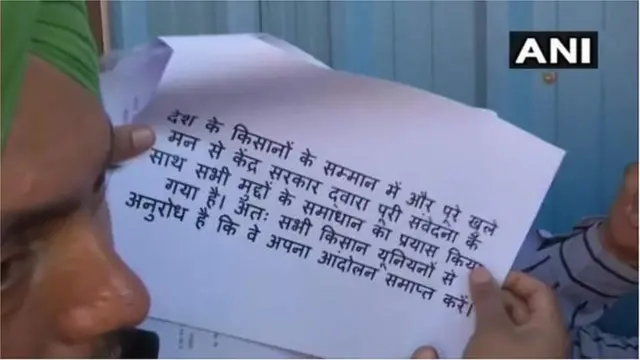 ANI
देश के किसानों के सम्मान में और पूरे खुले
मन से केंद्र सरकार द्वारा पूरी संवेदना के
साथ सभी मुद्दों के समाधान का प्रयास किया
गया है। अतः सभी किसान यूनियनों से
अनुरोध है कि वे अपना आंदोलन समाप्त करें।